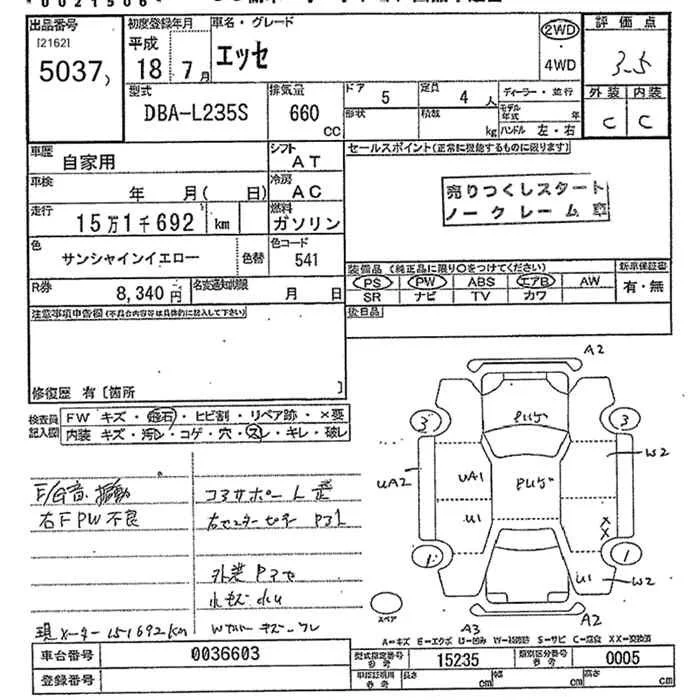 0021506
出品番号
[21621]
5037
初度登録年月
平成
18年7月
車名・グレード
エッセ
2WD
・
4WD
評価点
3.5
外装 内装
C C
型式
DBA-L235S
排気量
660
CC
ドア
5
定員
4 人
形状
積数
kg
ディーラー・並行
モデル
年式
年
ハンドル 左・右
車歴
自家用
シフト
AT
車検
年 月( 日)
冷房
AC
走行
15万1千692 km
燃料
ガソリン
色
サンシャインイエロー
色替
色コード
541
R券
8,340円
名変通知期限
月 日
セールスポイント(正常に機能するものに限ります)
売りつくしスタート
ノークレーム
装備品 (純正品に限り○をつけてください)
新車保証書
PS PW ABS エアB AW
有・無
SR ナビ TV カワ
後日品
注意事項申告欄(不具合内容等は具体的に記入して下さい)
修復歴 有〔箇所 〕
検査員
記入図
FW キズ・飛石・ヒビ割・リペア跡・×要
内装 キズ・汚レ・コゲ・穴・スレ・キレ・破レ
右F PW不良
現メーター151692km
コアサポート
右センターピラー
A2
3
3
W2
UA2
UA1
U1
XX
1
1
U1
W2
A3
A2
スペア
A=キズ E=エクボ U=凹み W=補修跡 S=サビ C=腐食 XX=交換済
車台番号
0036603
登録番号
型式指定番号
参考
15235
類別区分番号
参考
0005
車両証明用
参考
長さ
cm
幅
cm
高さ
cm